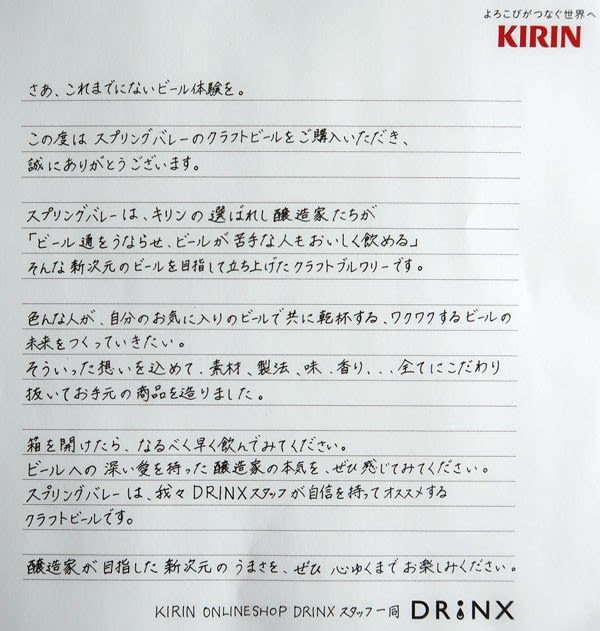 よろこびがつなぐ世界へ
KIRIN
さあ、これまでにないビール体験を。
この度は スプリングバレーのクラフトビールをご購入いただき、
誠にありがとうございます。
スプリングバレーは、キリンの選ばれし醸造家たちが
「ビール通をうならせ、ビールが苦手な人もおいしく飲める」
そんな新次元のビールを目指して立ち上げたクラフトブルワリーです。
色んな人が、自分のお気に入りのビールで共に乾杯する、ワクワクするビールの
未来をつくっていきたい。
そういった想いを込めて、素材、製法、味、香り、、、全てにこだわり
抜いてお手元の商品を造りました。
箱を開けたら、なるべく早く飲んでみてください。
ビールへの深い愛を持った醸造家の本気を、ぜひ感じてみてください。
スプリングバレーは、我々DRINXスタッフが自信を持ってオススメする
クラフトビールです。
醸造家が目指した新次元のうまさを、ぜひ 心ゆくまでお楽しみください。
KIRIN ONLINESHOP DRINX スタッフ一同 DRINX